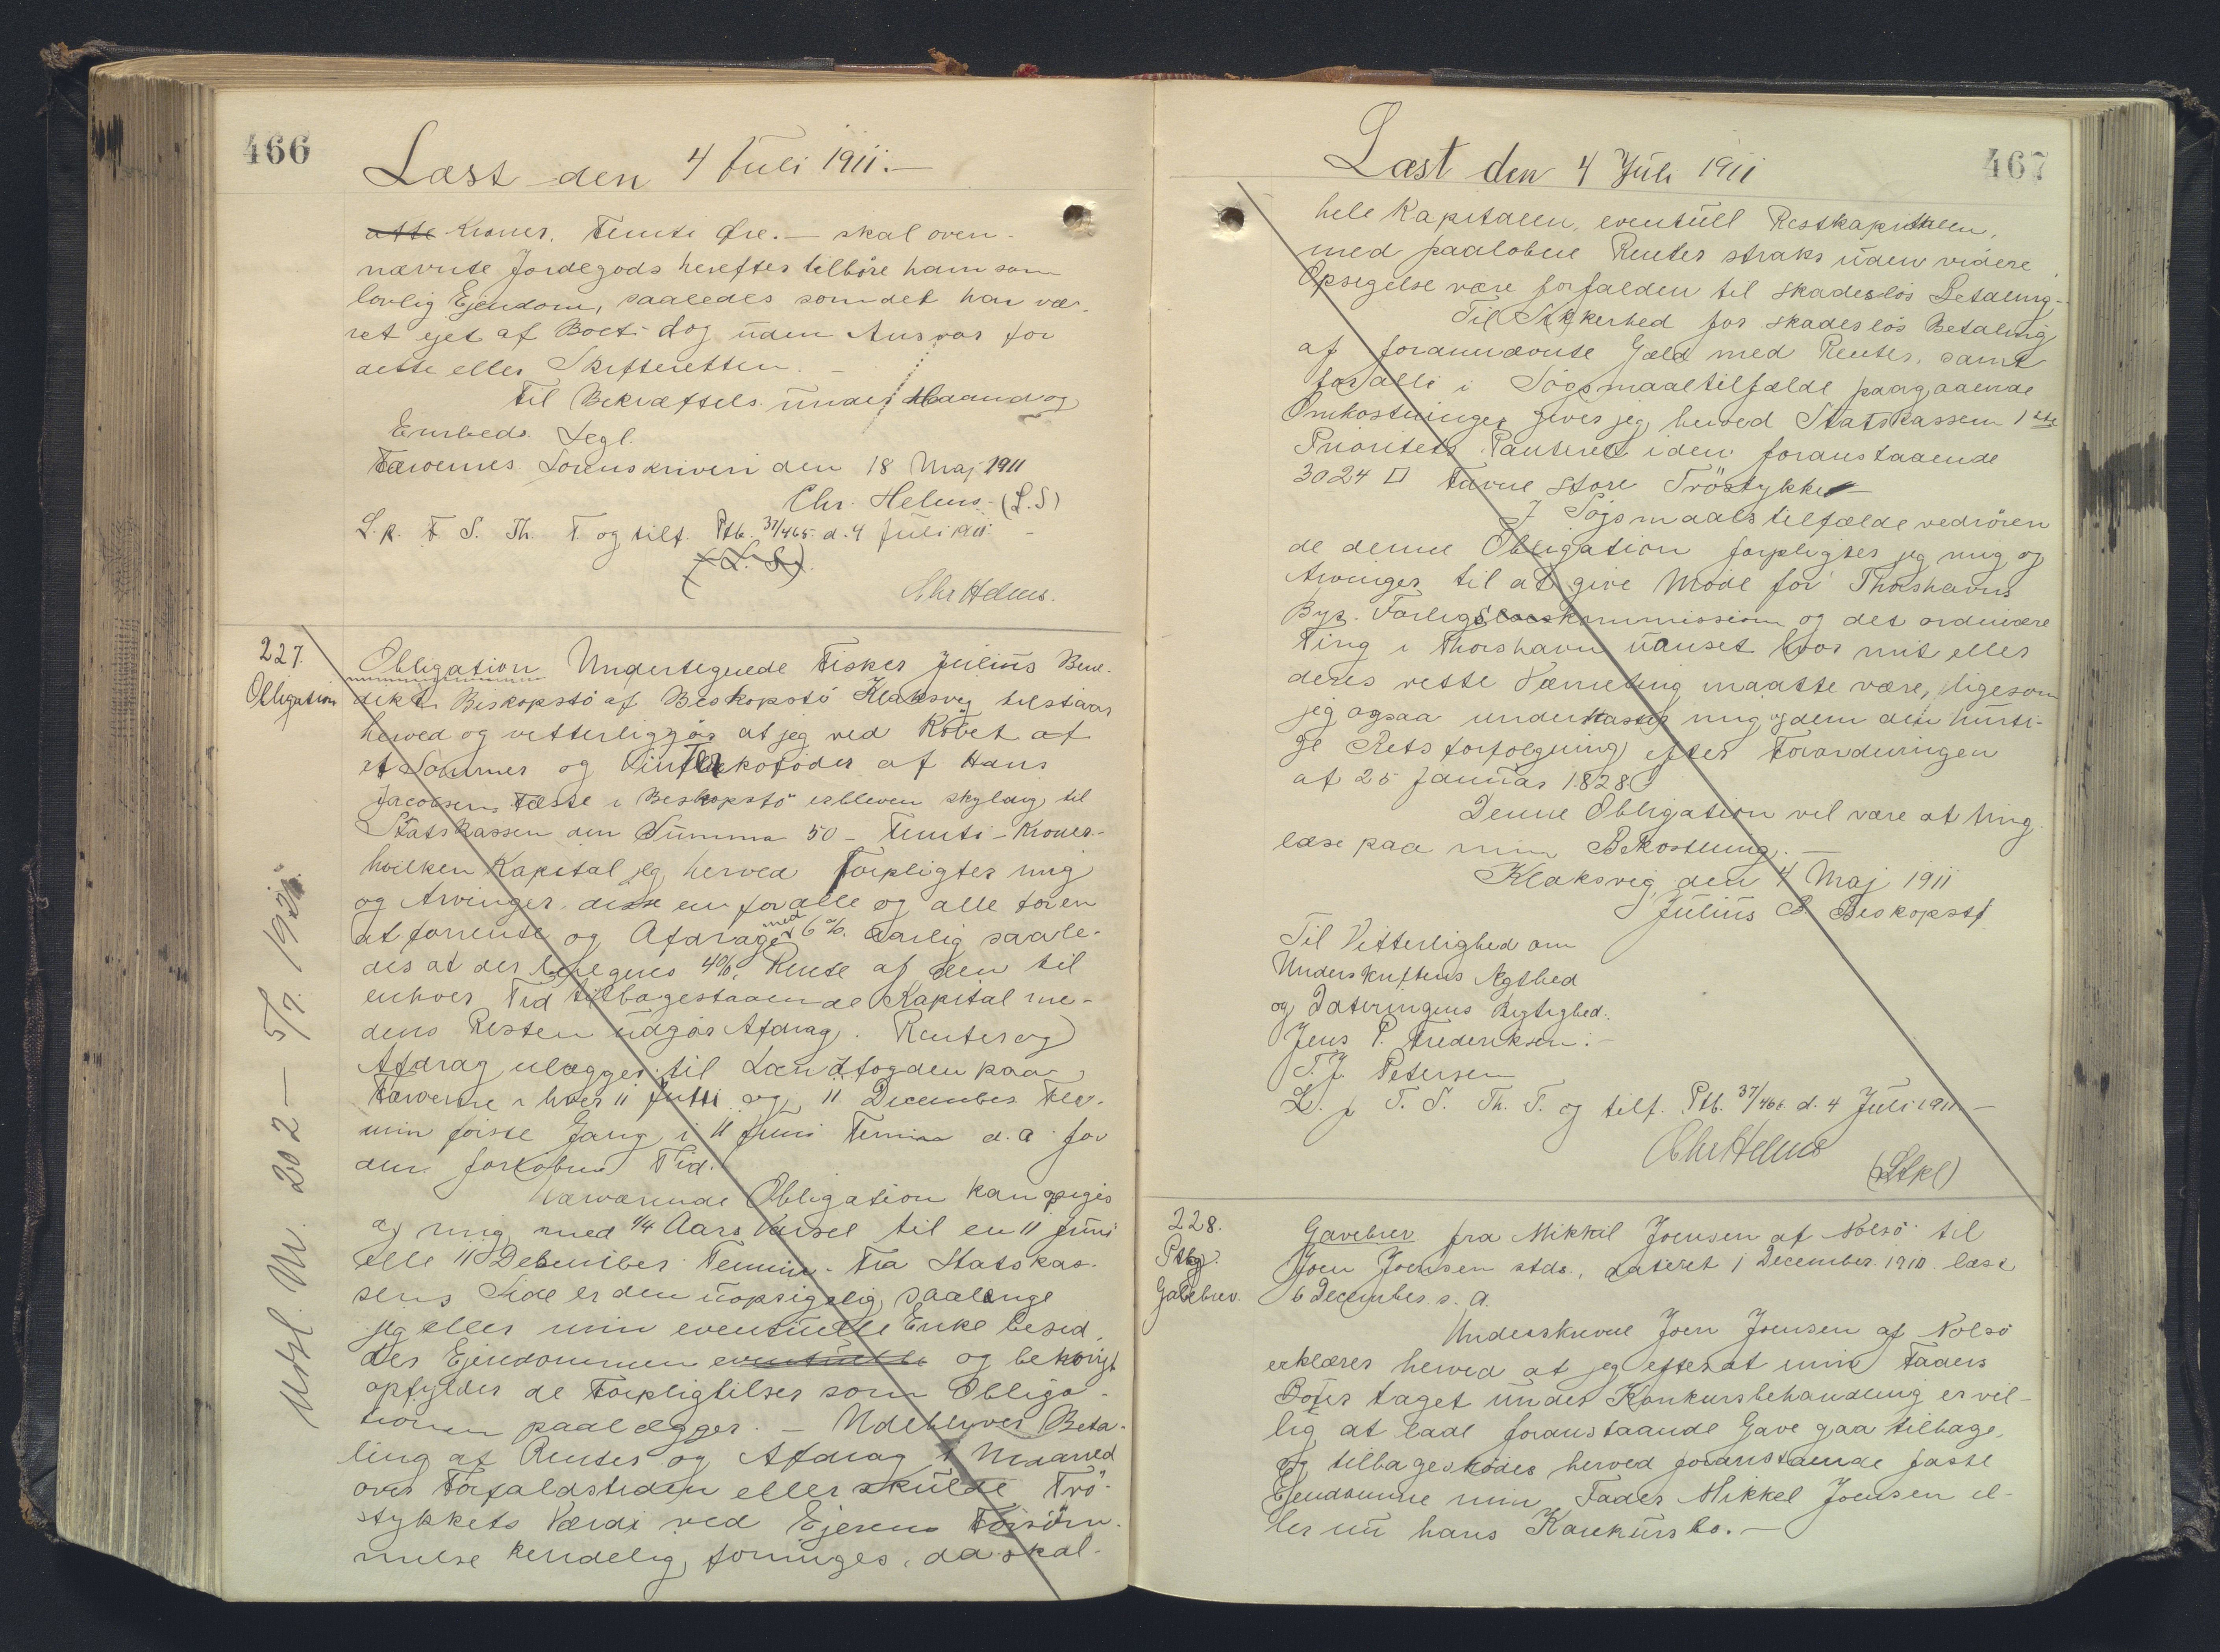 466
Læst den 4 Juli 1911.—
atte Kroner. Femti Øre.— skal oven-
nævnte Jordegods herefter tilhöre ham som
lovlig Ejendom, saaledes som det har væ-
ret ejet af Boet- dog uden Ansvar for
dette eller Skifteretten.—
Til Bekræftelse under Haand og
Embeds Segl.
Færøernes Sorenskriveri den 18 Maj 1911
Chr. Helms (L.S)
L.p. F. S. Th. T. og tilf. Ptb. 37/465 d. 4 Juli 1911.—
(L.S.)
Chr Helms.
227.
Obligation
Obligation Undertegnede Fisker Julius Bene-
dikt Biskopstö af Biskopstö Klaksvig tilstaar
herved og vitterliggör at jeg ved Köbet af
et Sommer og Vinterkofoder af Hans
Jacobsens Fæste i Biskopstö erbleven skyldig til
Statskassen den Summa 50 – Femti – Kroner-
hvilken Kapital jeg herved forpligter mig
og Arvinger disse en for alle og alle for en
at forrente og Afdrage med 6 % aarlig saale-
des at der beregnes 4% Rente af den til
enhver Tid tilbagestaaende Kapital me-
dens Resten udgör Afdrag. Renter og
Afdrag erlægges til Landfogden paa
Færøerne i hver 11 Juni og 11 December Ter-
min förste Gang i 11 Juni Termin d.a. for
den forlöbne Tid.
Nærværende Obligation kan opsiges
af mig med 1/4 Aars Varsel til en 11 Juni
elle 11 December Termin. Fra Statskas-
sens Side er den uopsigelig saalænge
jeg eller min eventuelle Enke besid-
der Ejendommen eventuelle og behörigt
opfylder de Forpligtelser som Obliga-
tionen paalægger.— Udebliver Beta-
ling af Renter og Afdrag 1 Maaned
over Forfaldstiden eller skulde Trö-
stykkets Værdi ved Ejerens Forsöm-
melse kendelig forringes, da skal
Udsl. M. 202 — 5/7. 1921.
467
Læst den 4 Juli 1911
hele Kapitalen, eventuell Restkapitalen,
med paalobne Renter straks uden videre
Opsigelse være forfalden til skadeslös Betaling-
Til Sikkerhed for skadeslös Betaling
af forannævnte Gæld med Renter, samt
for alle i Sögsmaaltilfælde paagaaende
Omkostninger giver jeg herved Statskassen 1ste
Prioritets Panteret i den foranstaaende
3024 □ Favne store Tröstykke—
I Sögsmaalstilfælde vedrören
de denne Obligation forpligter jeg mig og
Arvinger til at give Möde for Thorshavns
Bys Forligskommission og det ordinære
Ting i Thorshavn uanset hvor mit eller
deres rette Værneting maatte være, ligesom
jeg ogsaa underkaster mig og dem den hurti-
ge Retsforfølgning efter Forordningen
af 25 Januar 1828.
Denne Obligation vil være at ting-
læse paa min Bekostning.—
Klaksvig den 4 Maj 1911
Julius B. Biskopstö
Til Vitterlighed om
Underskriftens Ægthed
og Dateringens Rigtighed.
Jens P. Frederiksen.—
T. J. Petersen
L. p. F. S. Th. T. og tilf. Ptb. 37/466 d. 4 Juli 1911—
Chr Helms
(Stpl)
228.
Ptbg.
Gavebrev.
Gavebrev fra Mikkal Joensen af Nolsö til
Joen Joensen stds., dateret 1 December 1910. læst
6 December s. A.
Underskrevne Joen Joensen af Nolsö
erklærer herved at jeg efter at min Faders
Bo er taget under Konkursbehandling er vil-
lig at lade foranstaaende Gave gaa tilbage,
og tilbageskøder herved foranstaaende faste
Ejendomme min Fader Mikkel Joensen el-
ler nu hans Konkursbo.—